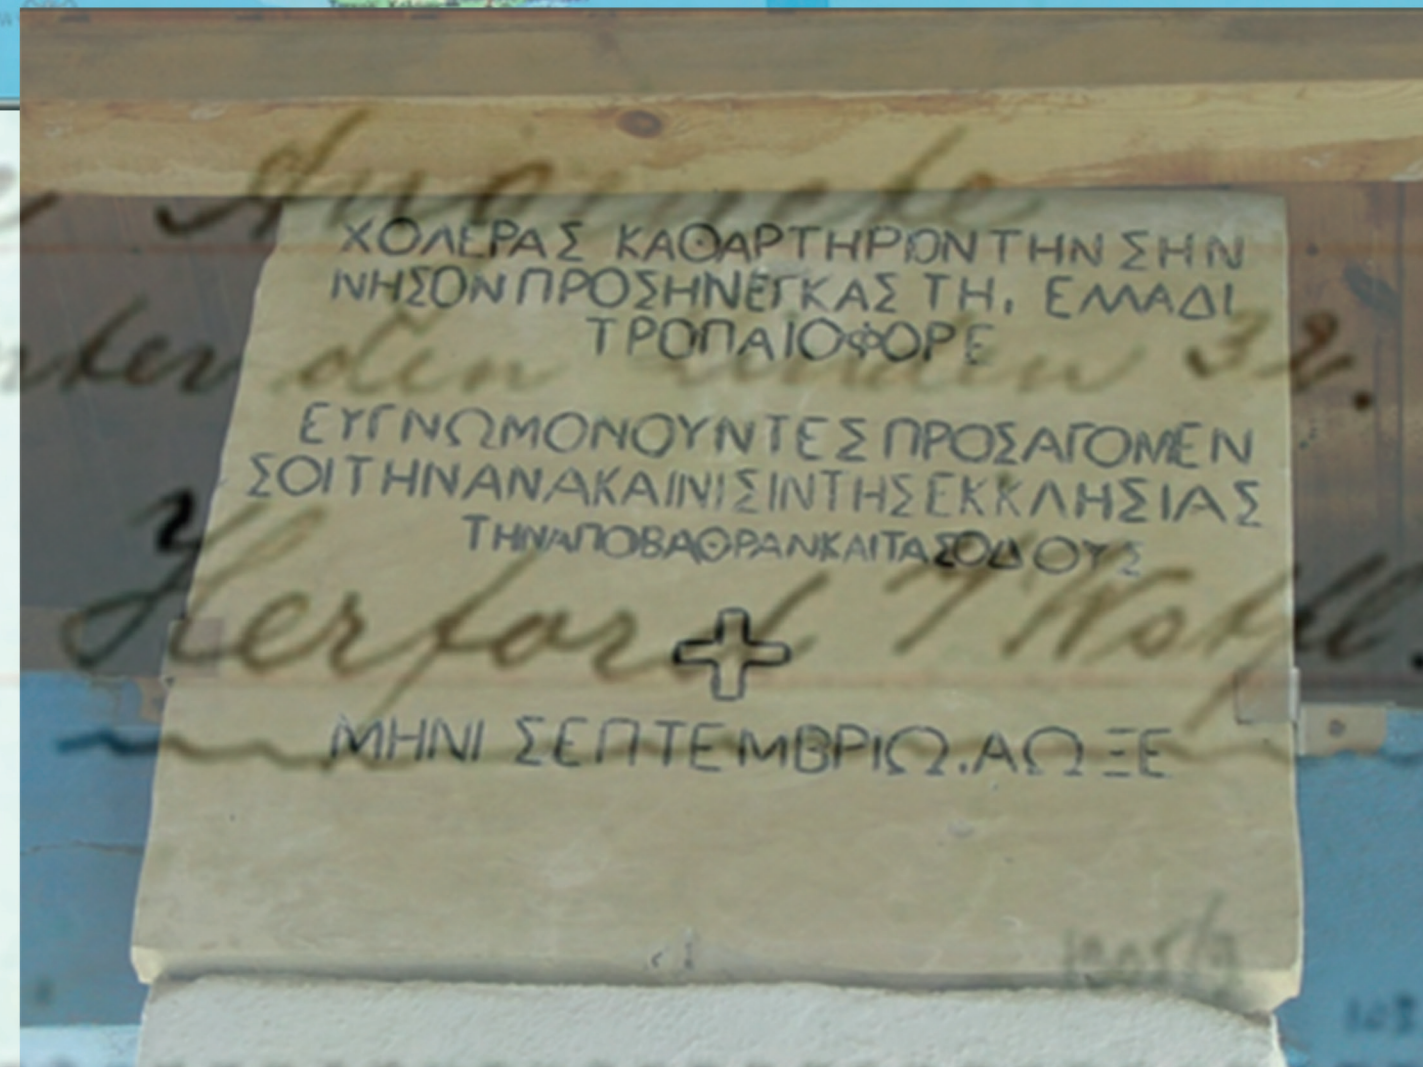 ΧΟΛΕΡΑΣ ΚΑΘΑΡΤΗΡΙΟΝ ΤΗΝ ΣΗΝ
ΝΗΣΟΝ ΠΡΟΣΗΝΕΓΚΑΣ ΤΗ, ΕΛΛΑΔΙ
ΤΡΟΠΑΙΟΦΟΡΕ
ΕΥΓΝΩΜΟΝΟΥΝΤΕΣ ΠΡΟΣΑΓΟΜΕΝ
ΣΟΙ ΤΗΝ ΑΝΑΚΑΙΝΙΣΙΝ ΤΗΣ ΕΚΚΛΗΣΙΑΣ
ΤΗΝ ΑΠΟΒΑΘΡΑΝ ΚΑΙ ΤΑΣ ΟΔΟΥΣ
ΜΗΝΙ ΣΕΠΤΕΜΒΡΙΩ. ΑΩΞΕ
den Linden 32.
Herford